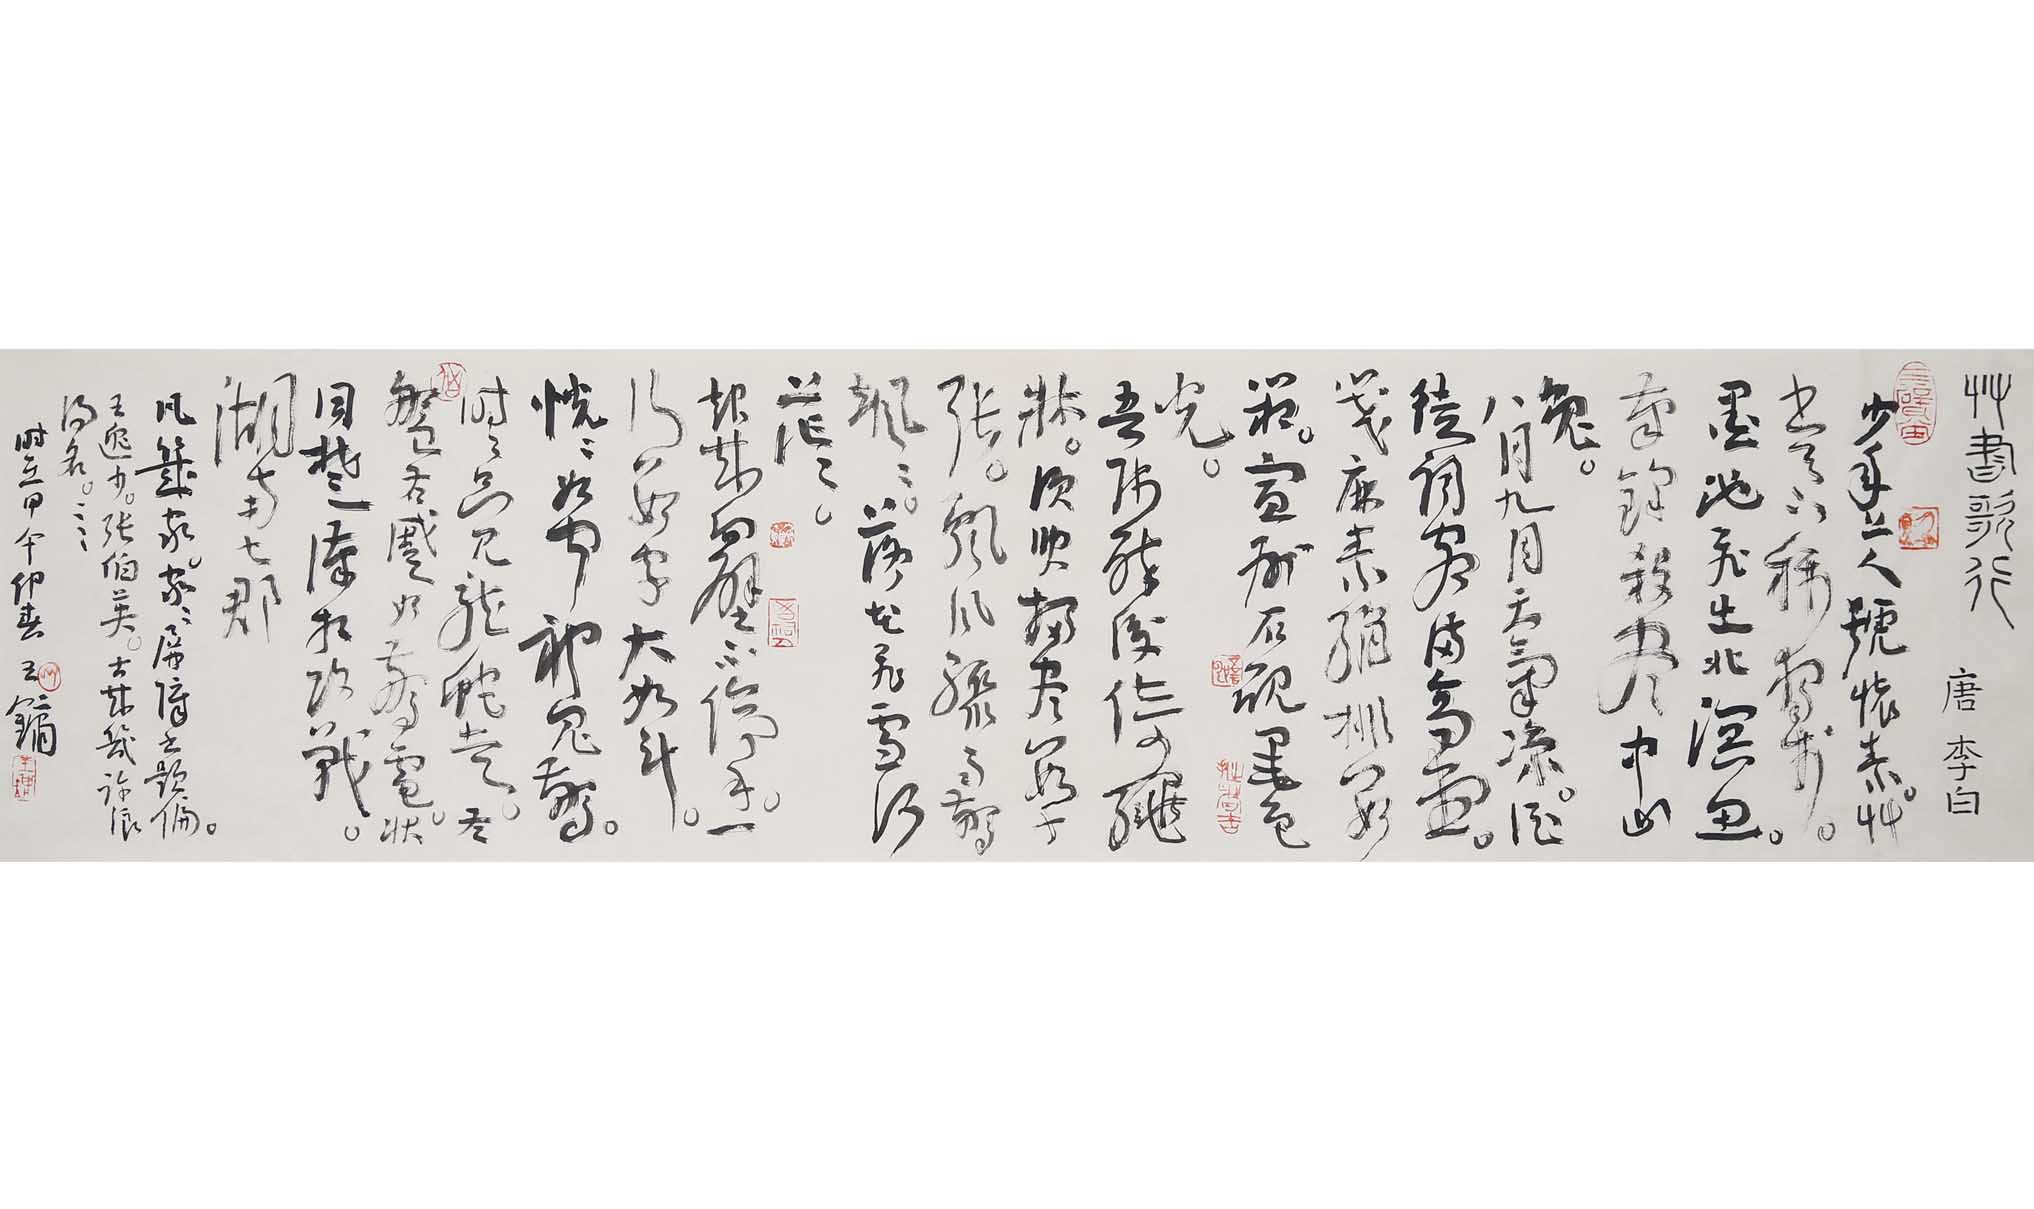 艸書歌行 唐 李白
少年上人號懷素。艸
书天下稱獨步。
墨池飛出北溟魚。
筆鋒殺盡中山
兔。
八月九月天氣凉。酒
徒詞客滿高堂。
箋麻素絹排數
箱。宣州石硯墨色
光。
吾師醉後倚繩
牀。須臾掃盡數千
張。飄風驟雨驚
颯々。落花飛雪何
茫々。
起來向壁不停手。一
行數字大如斗。
怳々如聞神鬼驚。
時々只見龍蛇走。左
盤右蹙如驚電。狀
同楚漢相攻戰。
湖南七郡
凡幾家。家々屏障書題徧。
王逸少。張伯英。古來幾許浪
得名。
時在甲午仲春 王鏞